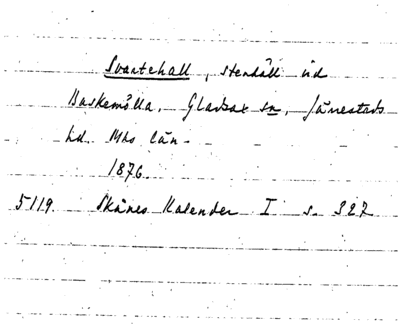 Svartehall, stenhäll vid
Baskemölla, Gladsax sn, Järrestads
hd. Mhs län.
1876.
5119. Skånes Kalender I s. 327